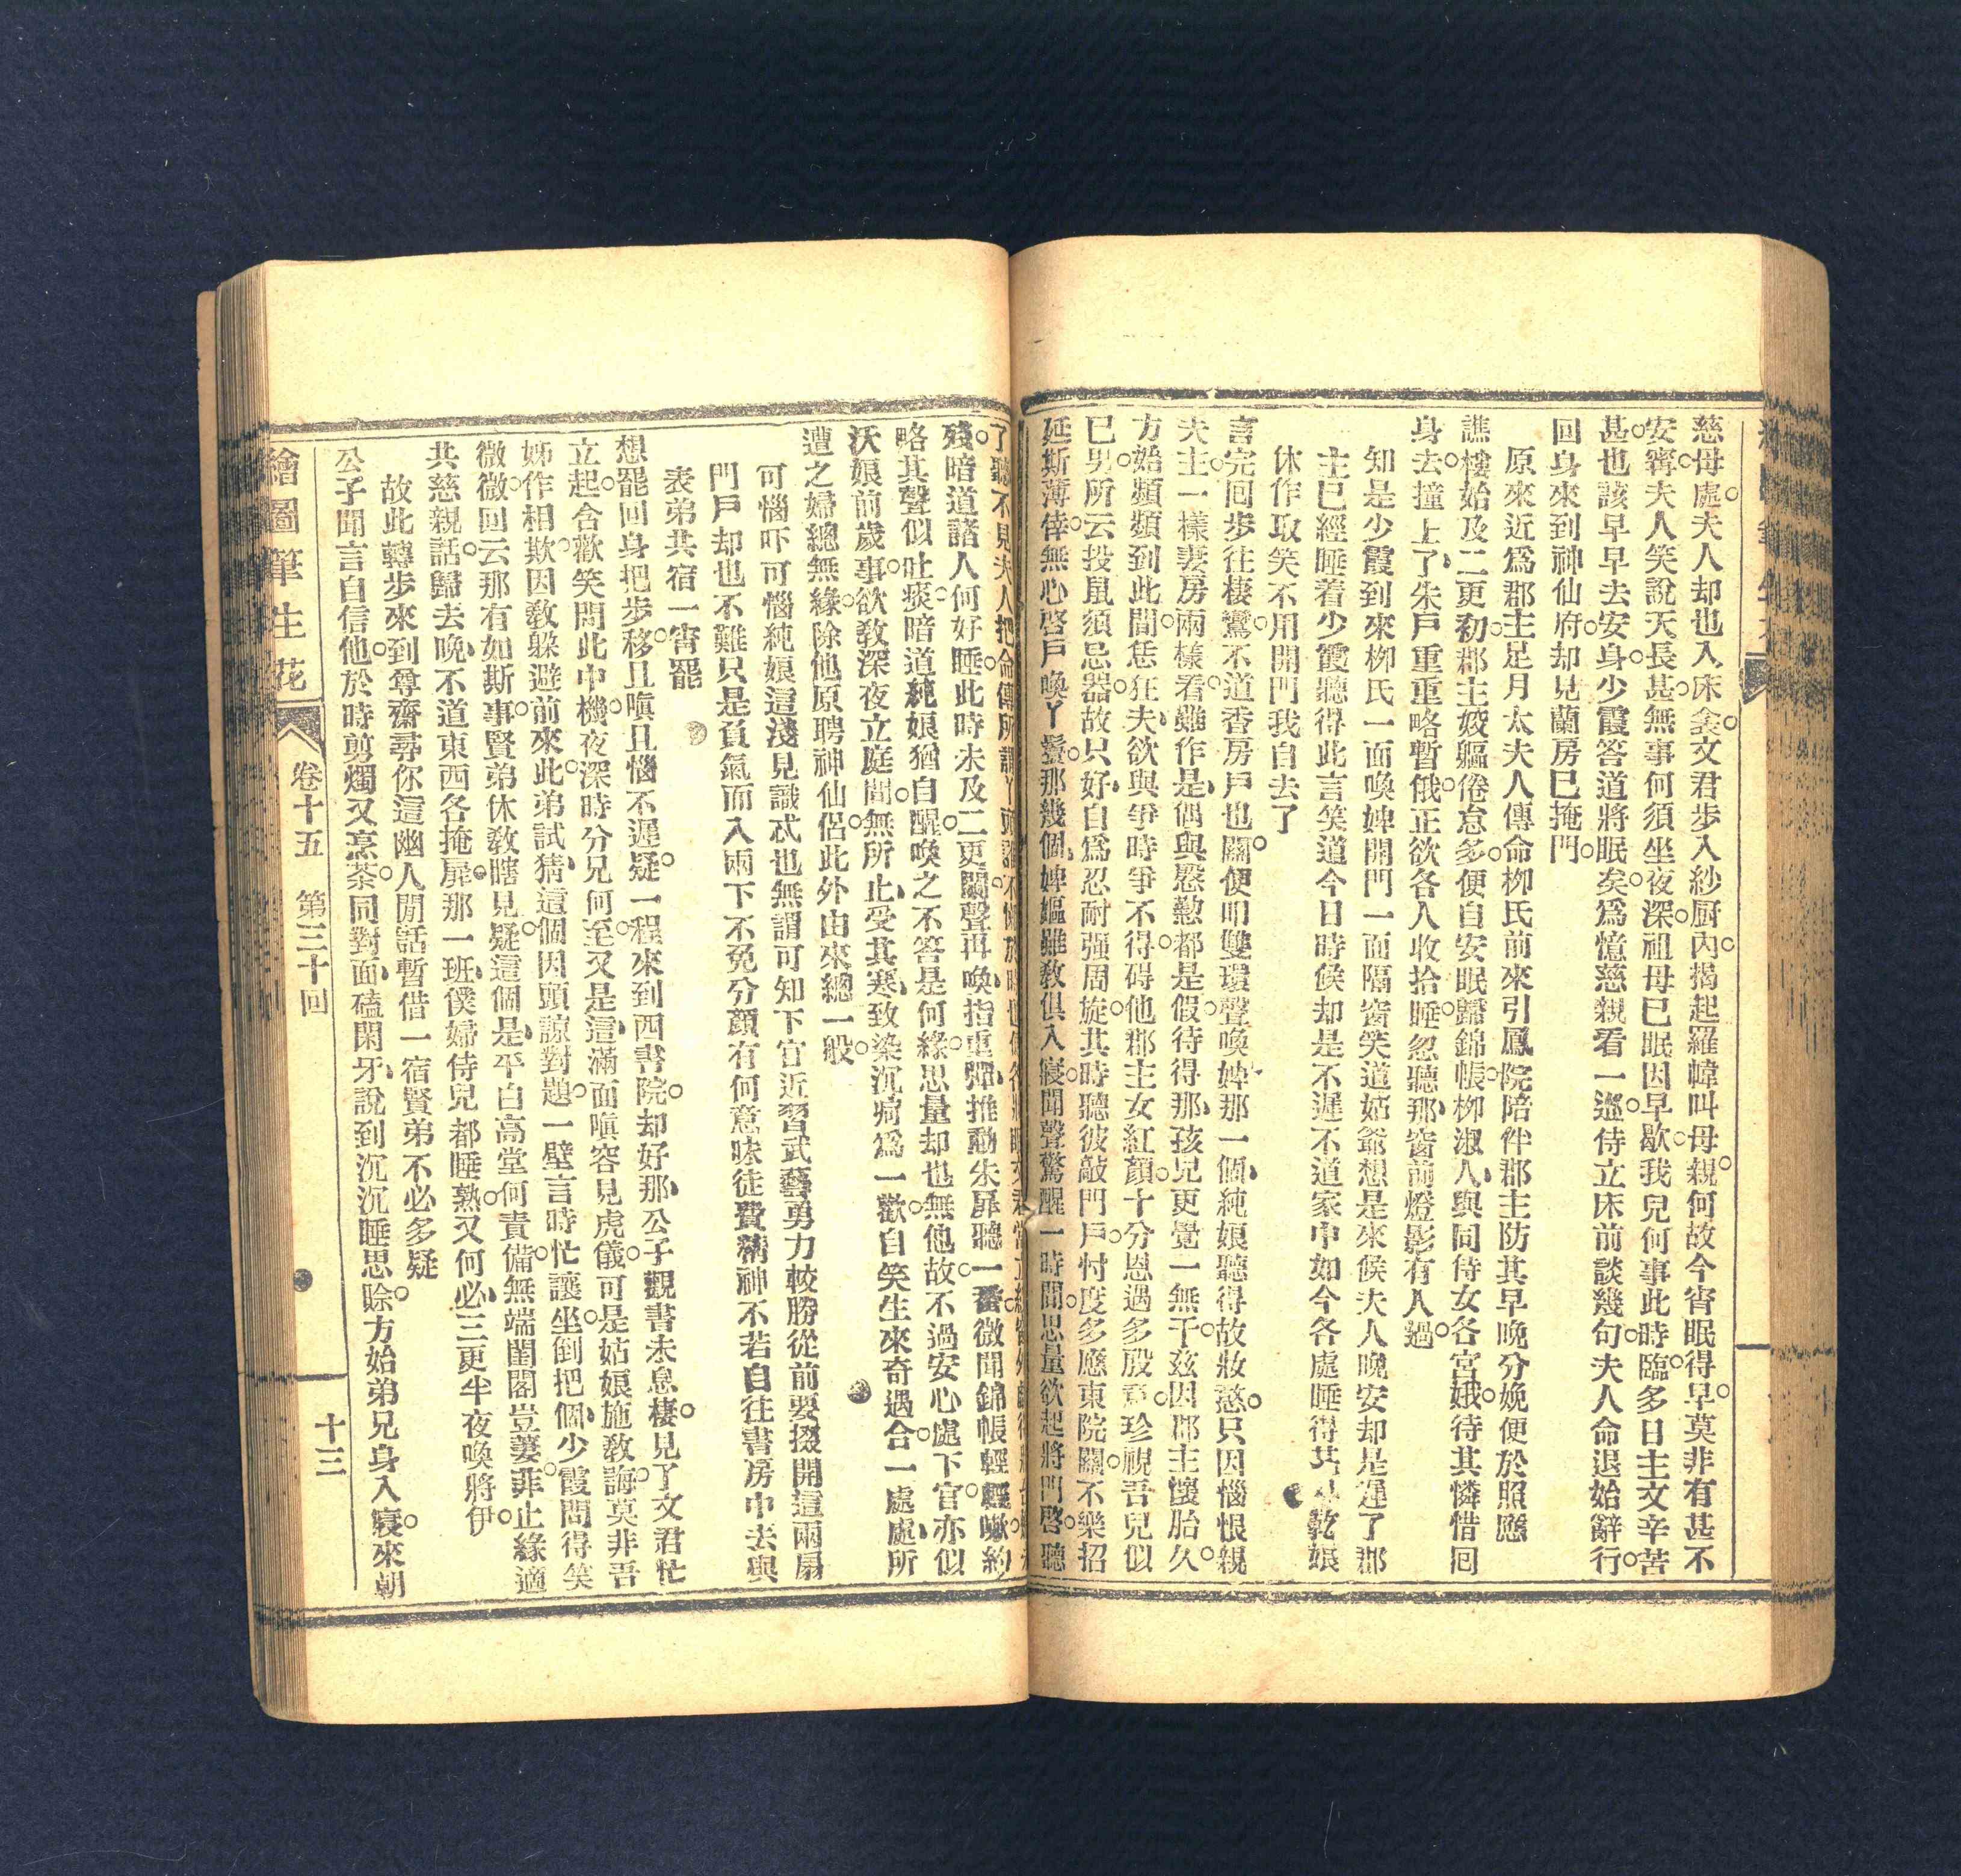 慈母處○夫人却也入床衾○文君步入紗厨內○揭起羅幃叫母親○何故今宵眠得早○莫非有甚不
安寗○夫人笑說天長甚○無事何須坐夜深○祖母已眠因早歇○我兒何事此時臨○多日主文辛苦
甚○也該早早去安身○少霞答道將眠矣○爲憶慈親看一巡○侍立床前談幾句○夫人命退始辭行○
回身來到神仙府○却見蘭房已掩門○
原來近爲郡主足月太夫人傳命柳氏前來引鳳院陪伴郡主防其早晚分娩便於照應
譙樓始及二更初○郡主姣軀倦怠多○便自安眠歸錦帳○柳淑人與同侍女各宮娥○待其憐惜回
身去○撞上了朱戶重重略暫俄○正欲各人收拾睡○忽聽那窗前燈影有人過○
知是少霞到來柳氏一面喚婢開門一面隔窗笑道姑爺想是來候夫人晚安却是遲了郡
主已經睡着少霞聽得此言笑道今日時候却是不遲不道家中如今各處睡得其早乾娘
休作取笑不用開門我自去了
言完回步往棲鸞○不道香房戶也關○便叩雙環聲喚婢○那一個純娘聽得故妝憨○只因惱恨親
夫主○一樣妻房兩樣看○難作是偶與慇懃都是假○待得那孩兒更覺一無干○玆因郡主懷胎久○
方始頻頻到此間○恁狂夫欲與爭時爭不得○碍他郡主女紅顏○十分恩遇多殷意○珍視吾兒似
已男○所云投鼠須忌器○故只好自爲忍耐强周旋○其時聽彼敲門戶○忖度多應東院關○不樂招
延斯薄倖○無心啓戶喚丫鬟○那幾個婢嫗雖敎俱入寢○聞聲驚醒一時間○思量欲起將門啓○聽
殘○暗道諸人何好睡○此時未及二更闌○聲再喚指重彈○推動朱扉聽一番○微聞錦帳輕輕嗽○約
略其聲似吐痰○暗道純娘猶自醒○喚之不答是何緣○思量却也無他故○不過安心處下官○亦似
沃娘前歲事○欲敎深夜立庭間○無所止受其寒○致染沉疴爲一歡○自笑生來奇遇合○一處處所
遭之婦總無緣○除他原聘神仙侶○此外由來總一般○
可惱吓可惱純娘這淺見識忒也無謂可知下官近習武藝勇力較勝從前要掇開這兩扇
門戶却也不難只是負氣而入兩下不免分顏有何意味徒費精神不若自往書房中去與
表弟共宿一宵罷
想罷回身把步移○且嗔且惱不遲疑○一程來到西書院○却好那公子觀書未息棲○見了文君忙
立起○含歡笑問此中機○夜深時分兄何至○又是這滿面嗔容見虎儀○可是姑娘施敎誨○莫非吾
姊作相欺○因敎躱避前來此○弟試猜這個因頭諒對題○一壁言時忙讓坐○倒把個少霞問得笑
微微○回云那有如斯事○賢弟休敎瞎見疑○這個是平白高堂何責備○無端閨閣豈萋菲○止緣適
共慈親話○歸去晚不道東西各掩扉○那一班僕婦侍兒都睡熟○又何必三更半夜喚將伊○
故此轉步來到尊齋尋你這幽人閒話暫借一宿賢弟不必多疑
公子聞言自信他○於時剪燭又烹茶○同對面磕閑牙○說到沉沉睡思賒○方始弟兄身入寢○來朝
繪圖筆生花
卷十五　第三十回
十三